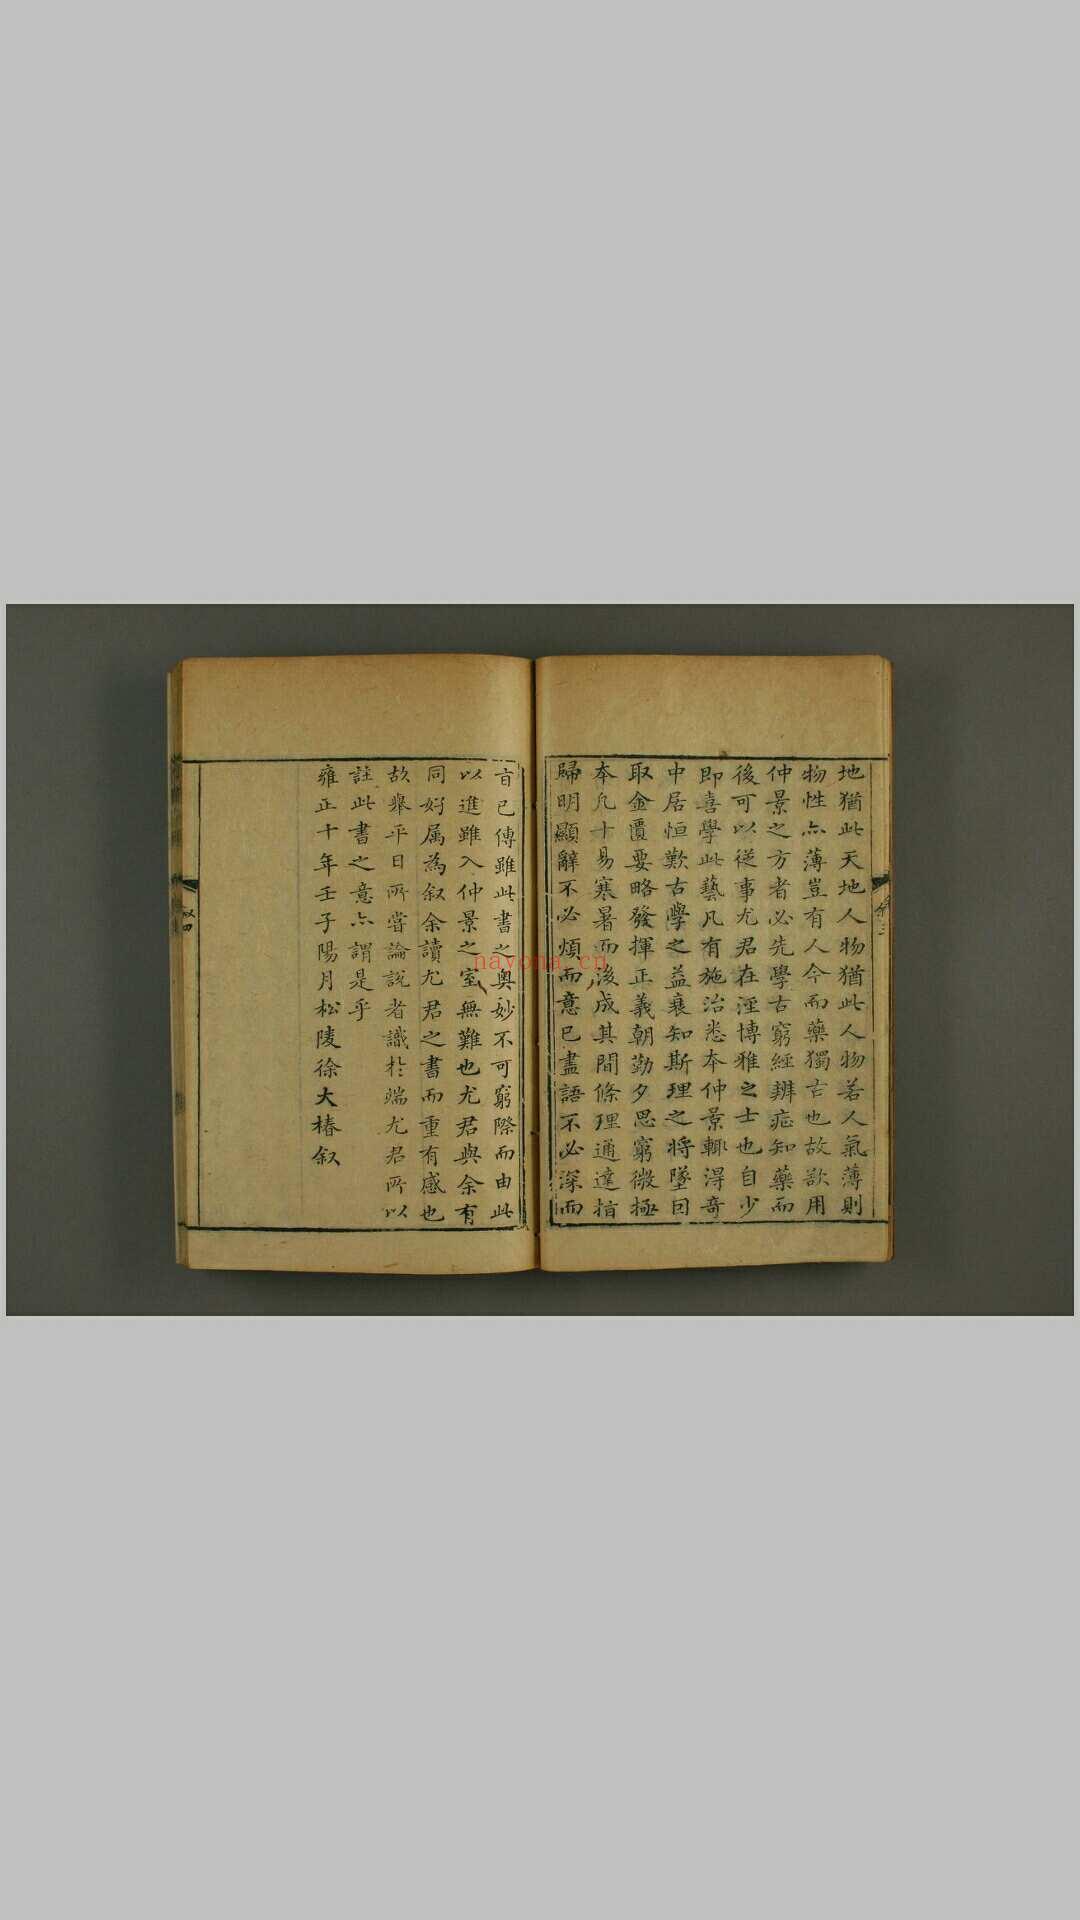 地猶此天地人物猶此人物若人氣薄則
物性亦薄豈有人今而藥獨古也故欲用
仲景之方者必先學古窮經辨症知藥而
後可以從事尤君在涇博雅之士也自少
即喜學此藝凡有施治悉本仲景輒得奇
中居恒歎古學之益衰知斯理之將墜因
取金匱要略發揮正義朝勤夕思窮微極
本凡十易寒暑而後成其間條理通達指
歸明顯辭不必煩而意已盡語不必深而
旨已傳雖此書之奧妙不可窮際而由此
以進雖入仲景之室無難也尤君與余有
同好属為叙余讀尤君之書而重有感也
故舉平日所嘗論說者識於端尤君所以
註此書之意亦謂是乎
雍正十年壬子陽月松陵徐大椿叙
叙三
叙四
nayona.cn